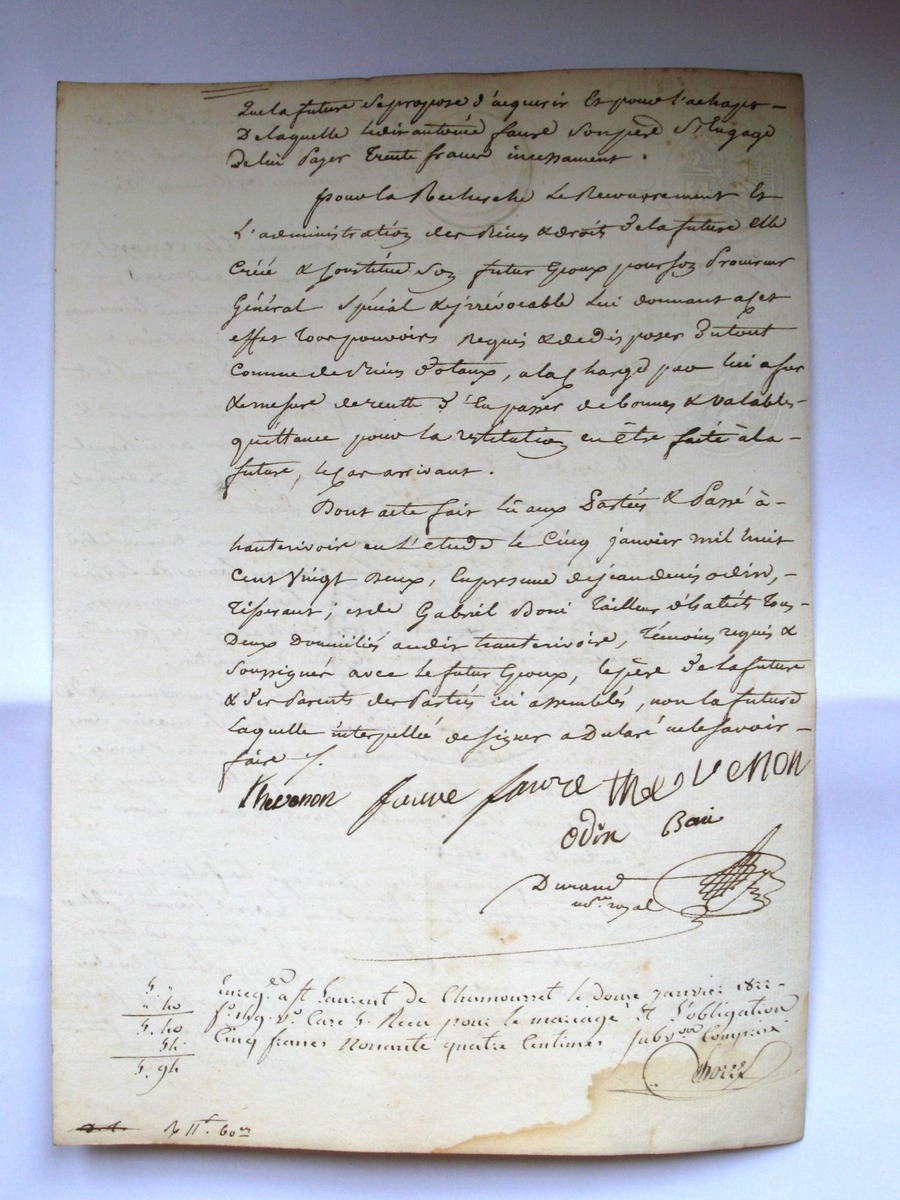 que la future se propose d'acquerir Et pour l'achapt
De laquelle ledit antoine faure son père S'Engage
De lui Payer Trente francs incessament.
pour la Recherche Le Recouvrement Et
L'administration des Biens & droits De la future Elle
Créé & Constitue son futur Epoux pour son Procureur
Général Spécial & irrévocable Lui donnant a cet
effet Tous pouvoirs Requis & de disposer Du tout
Comme de Biens Dotaux, a la Charge par lui a fur
& mesure de recette D'En passer de bonnes & valables
quittance pour la restitution en être faite à la
future, le cas arrivant.
Dont acte fait lu aux Parties & Passé à
hauterivoire en L'etude le Cinq janvier mil huit
Cent Vingt deux, En presence de jean denis odin,
Tisserant; et de Gabriel Boni Tailleur d'habits Tous
Deux Domiciliés audit hauterivoire, Témoins requis &
Soussignés avec Le futur Epoux, le père De la future
& Des Parents des Parties ici assemblés, non la future
Laquelle interpellée de signer a Declaré ne le Savoir
faire /.
Thevenon faure faure Thevenon
odin Boni
Durand
not.re royal
5. "
" 40
5. 40
54
5. 94
Enreg.é a St Laurent de Chamousset le douze janvier 1822
f.o 169 v.o Case 5. Recu pour le mariage Et L'obligation
Cinq francs Nonante quatre Centimes Subv.on Comprise.
11f. 60